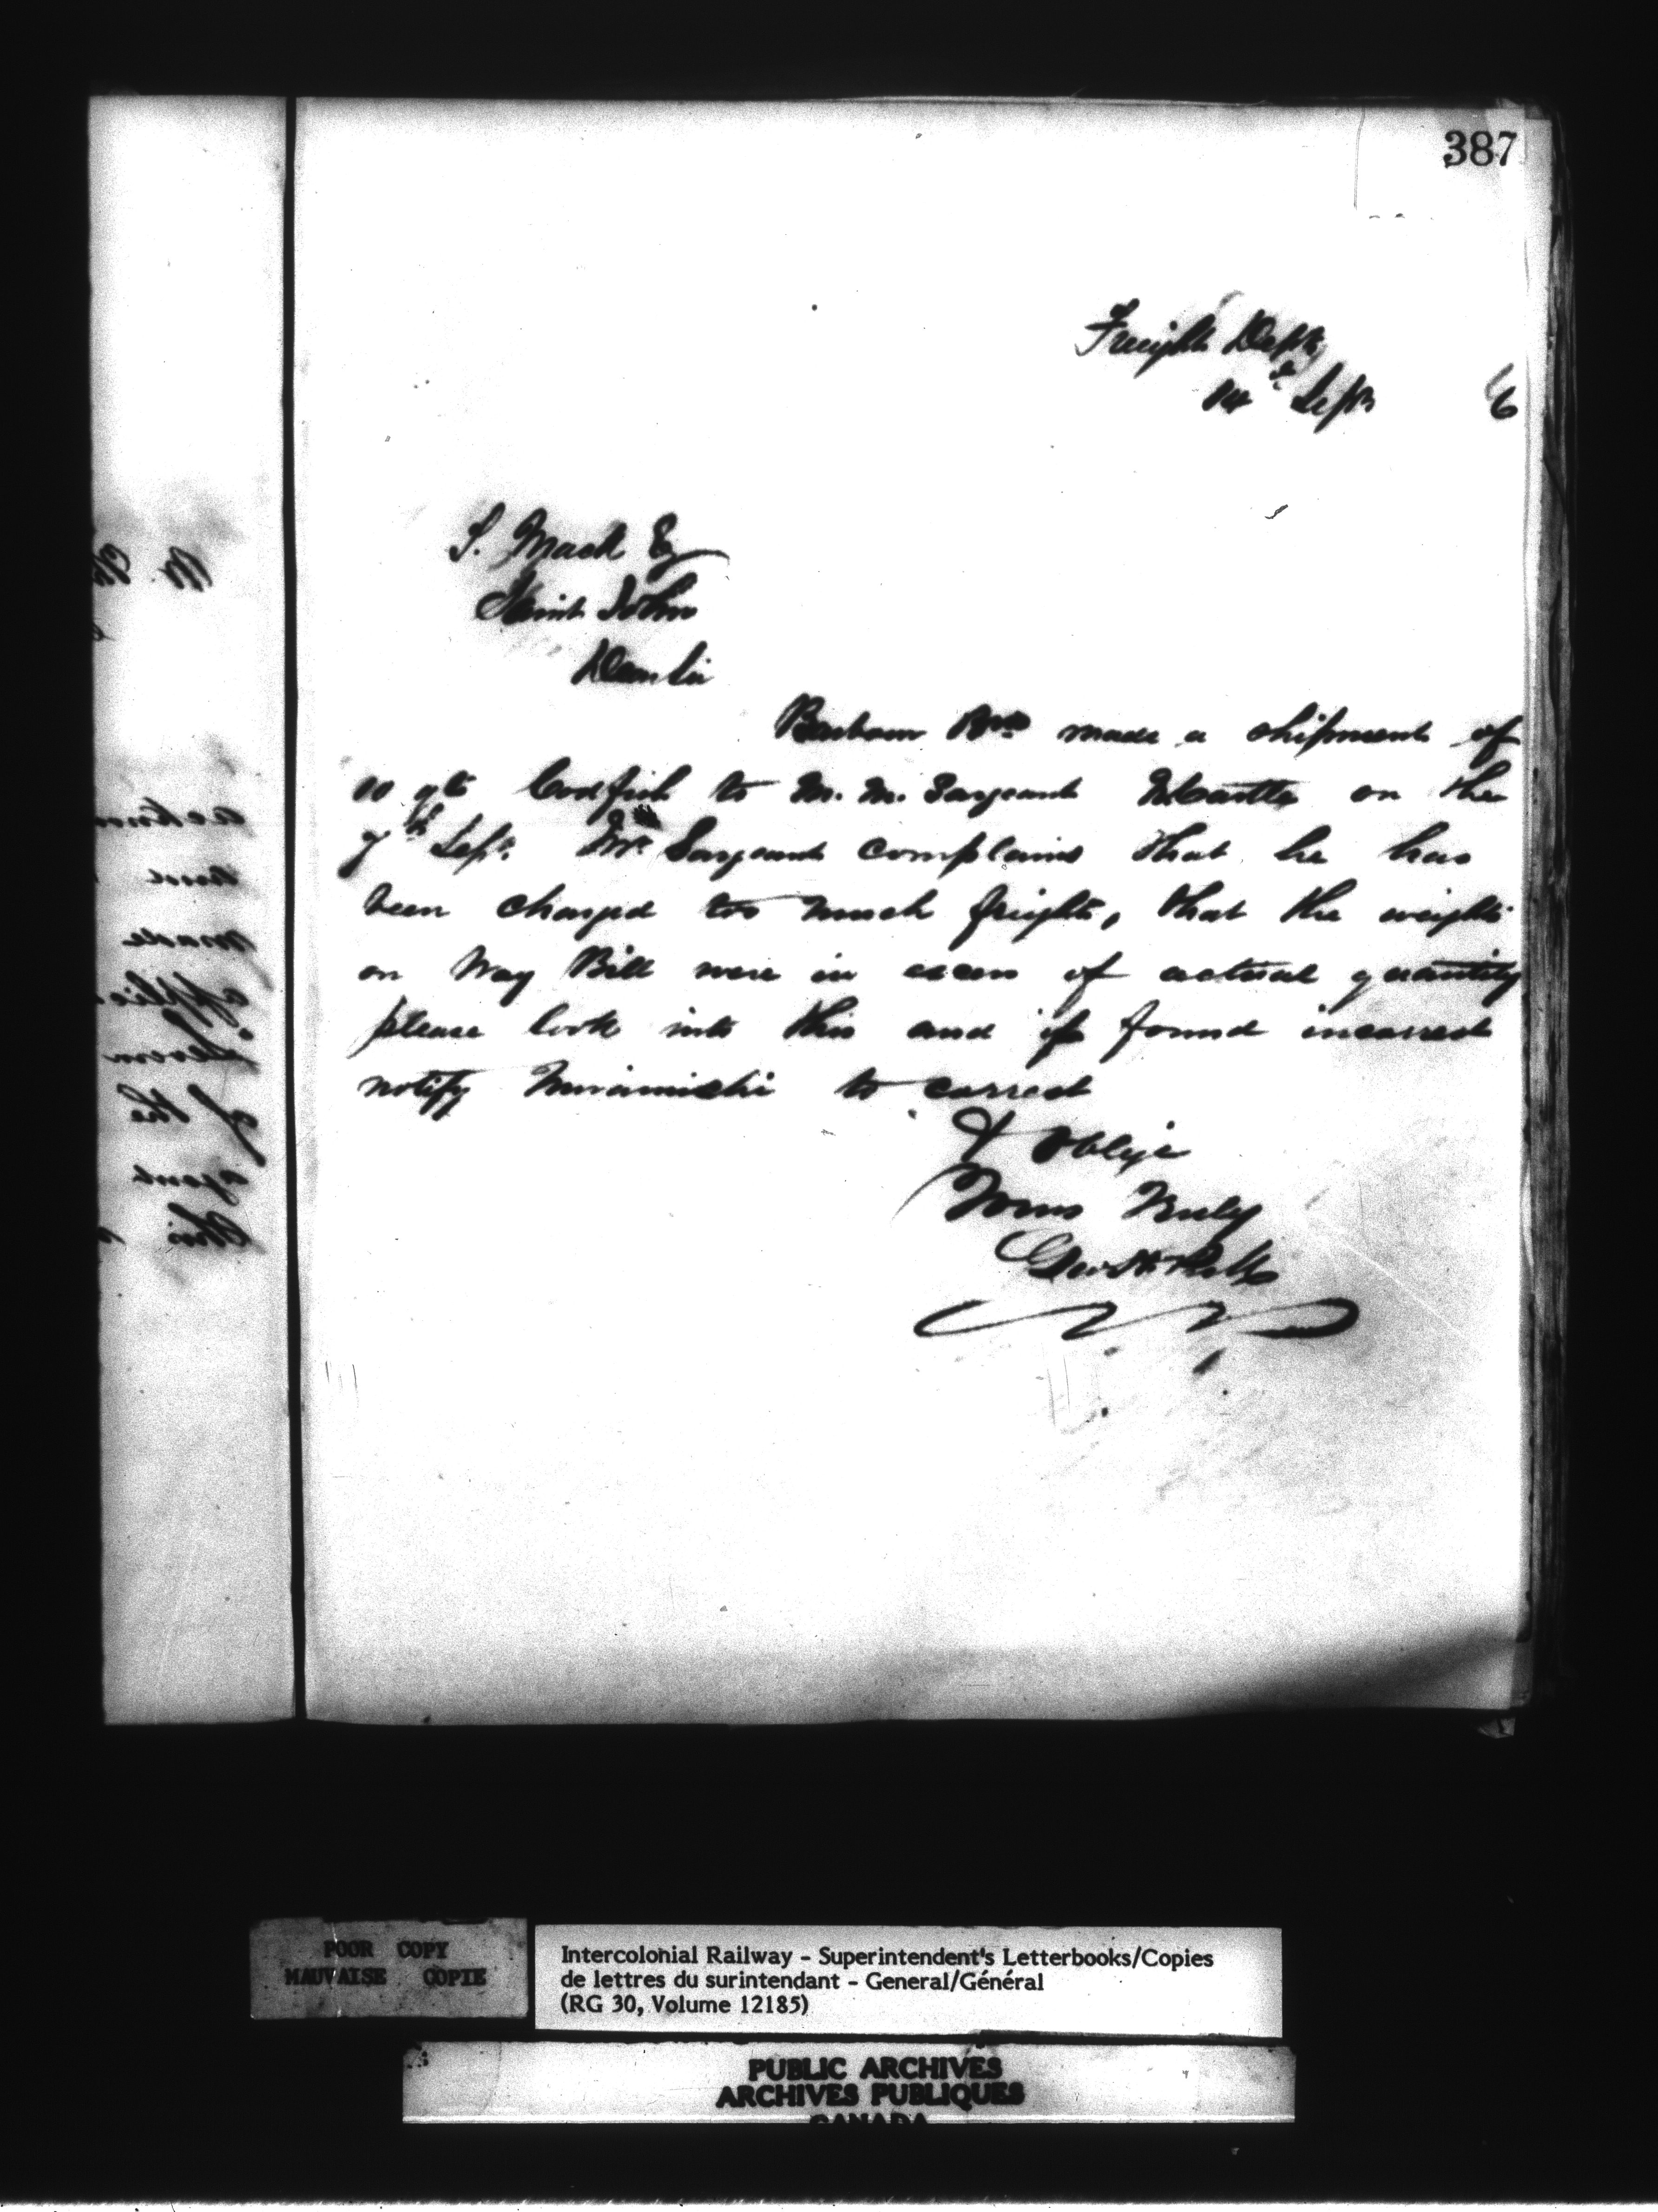 387
Freight Dept
14th Sept 6
S. Mack Esq
Saint John
Dear Sir
Barbour Bros made a shipment of
10 qts Codfish to M. M. Sargeant Ncastle on the
7th Sept. Mr Sargeant complains that he has
been charged too much freight, that the weights
on Way Bill were in excess of actual quantity
please look into this and if found incorrect
notify Miramichi to correct
& oblige
Yours Truly
POOR COPY
MAUVAISE COPIE
Intercolonial Railway - Superintendent's Letterbooks/Copies
de lettres du surintendant - General/Général
(RG 30, Volume 12185)
PUBLIC ARCHIVES
ARCHIVES PUBLIQUES
CANADA